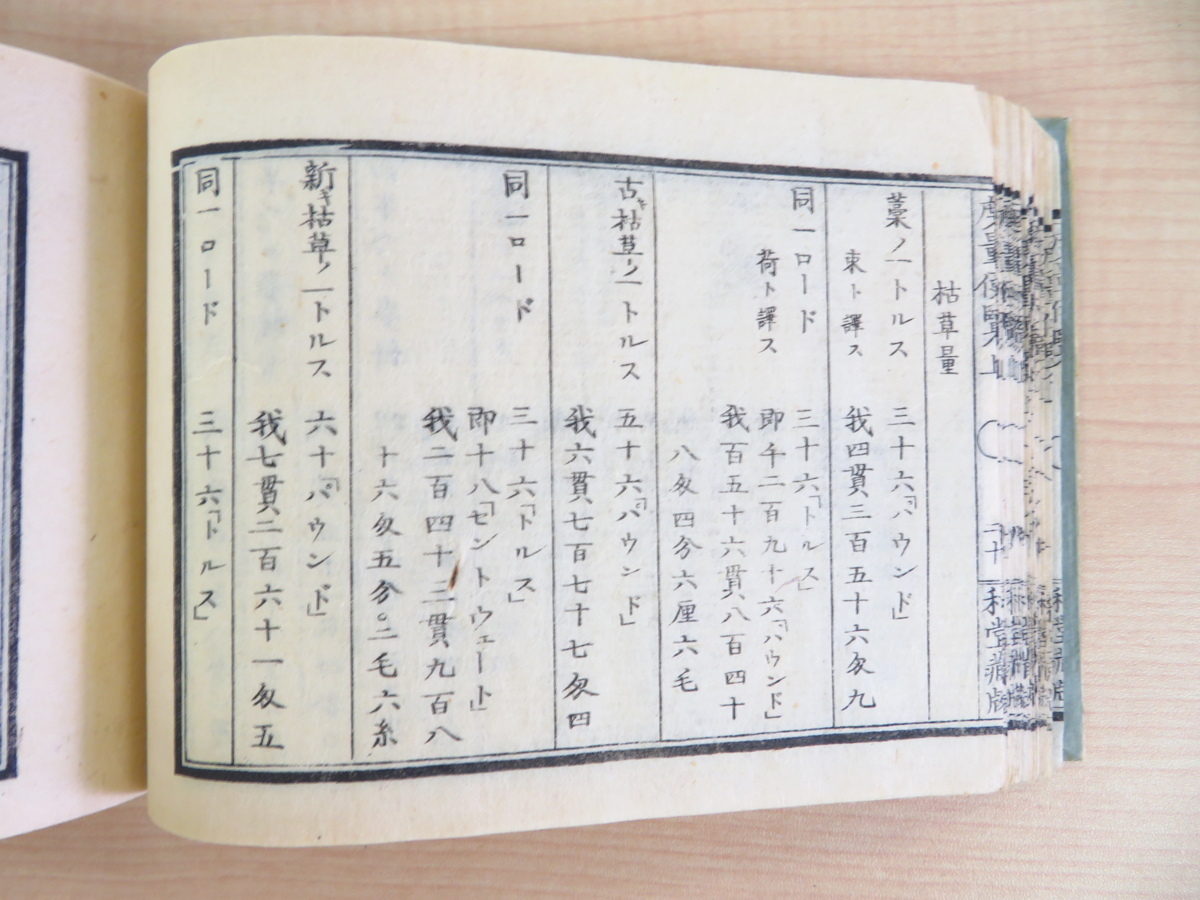 度量便覧上
二十
枯草量
藁ノ一トルス 三十六「パウンド」
束ト譯ス 我四貫三百五十六匁九
同一ロード 三十六「トルス」
荷ト譯ス 即千二百九十六「パウンド」
我百五十六貫八百四十
八匁四分六厘六毛
古キ枯草ノ一トルス 五十六「パウンド」
我六貫七百七十七匁四
同一ロード 三十六「トルス」
即十八「セントウェート」
我二百四十三貫九百八
十六匁五分〇二毛六糸
新キ枯草ノ一トルス 六十「パウンド」
我七貫二百六十一匁五
同一ロード 三十六「トルス」